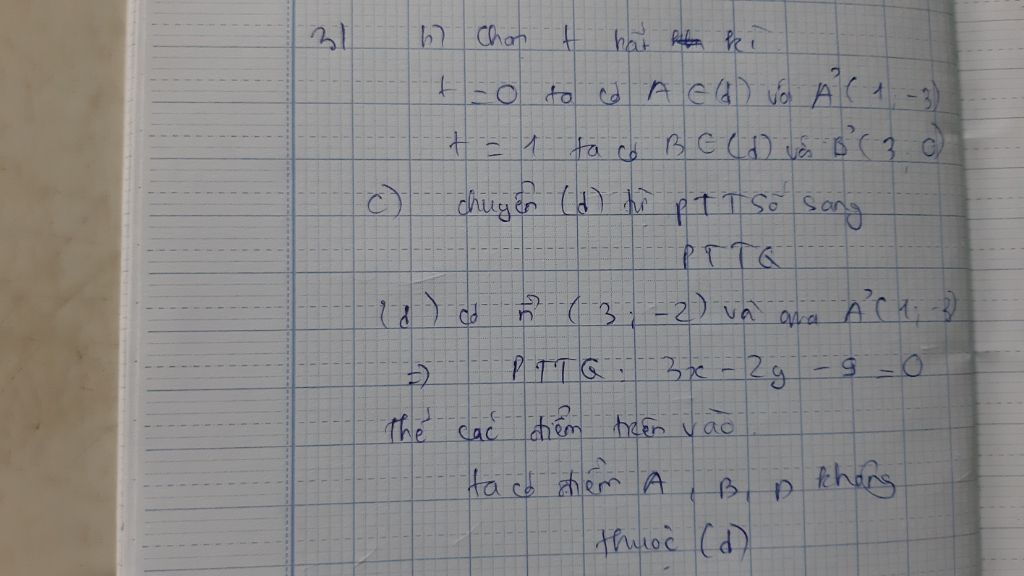 3) b) Chọn t bất kì
t = 0 ta có A ∈ (d) và A'(1; -3)
t = 1 ta có B ∈ (d) và B'(3; 0)
c) chuyển (d) từ PTTSố sang
PTTQ
(d) có n⃗ (3; -2) và qua A'(1; -3)
=> PTTQ: 3x - 2y - 9 = 0
Thế các điểm trên vào
ta có điểm A, B, D không
thuộc (d)